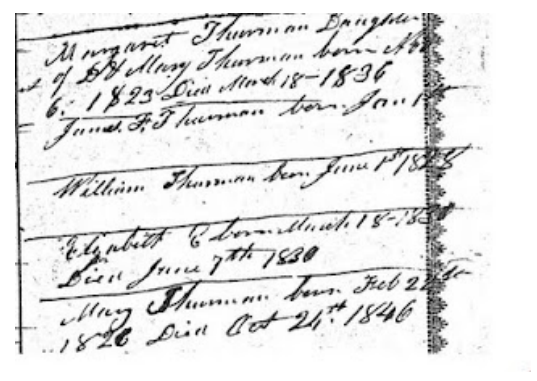 Margaret Thurman Daughter
of D & Mary Thurman born Nov
6. 1823 Died March 18-1836
James F. Thurman born Jan 1st
William Thurman born June 1st 1828
Elizabeth E born March 18-1830
Died June 7th 1830
Mary Thurman born Feb 22
1826 Died Oct 24th. 1846